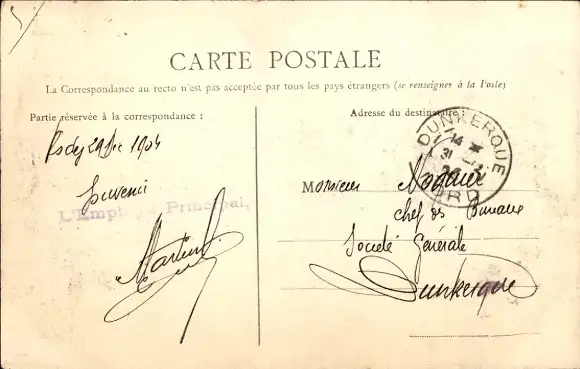 CARTE POSTALE
La Correspondance au recto n'est pas acceptée par tous les pays étrangers (se renseigner à la Poste)
Partie réservée à la correspondance :
29 Dec 1904
Souvenir
L'Employé Principal,
Adresse du destinataire :
DUNKERQUE
NORD
Monsieur
Chef de Bureau
Société Générale
Dunkerque